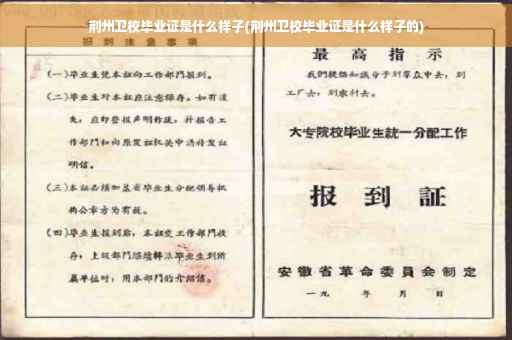 荆州卫校毕业证是什么样子(荆州卫校毕业证是什么样子的)
报到注意事项
(一)毕业生凭本证向工作部门报到。
(二)毕业生对本证应注意保存。如有遗
失，应即登报声明作废，并报告工
作部门和向原发证机关申请补发证
明信。
(三)本证必须加盖省毕业生分配领导机
构公章方为有效。
(四)毕业生报到后，本证交工作部门收
存；上级部门继续转派毕业生到所
属单位时，用本部门的介绍信。
最高指示
我们提倡知识分子到群众中去，到
工厂去，到农村去。
大专院校毕业生統一分配工作
报到証
安徽省革命委員会制定
一九 年 月 日